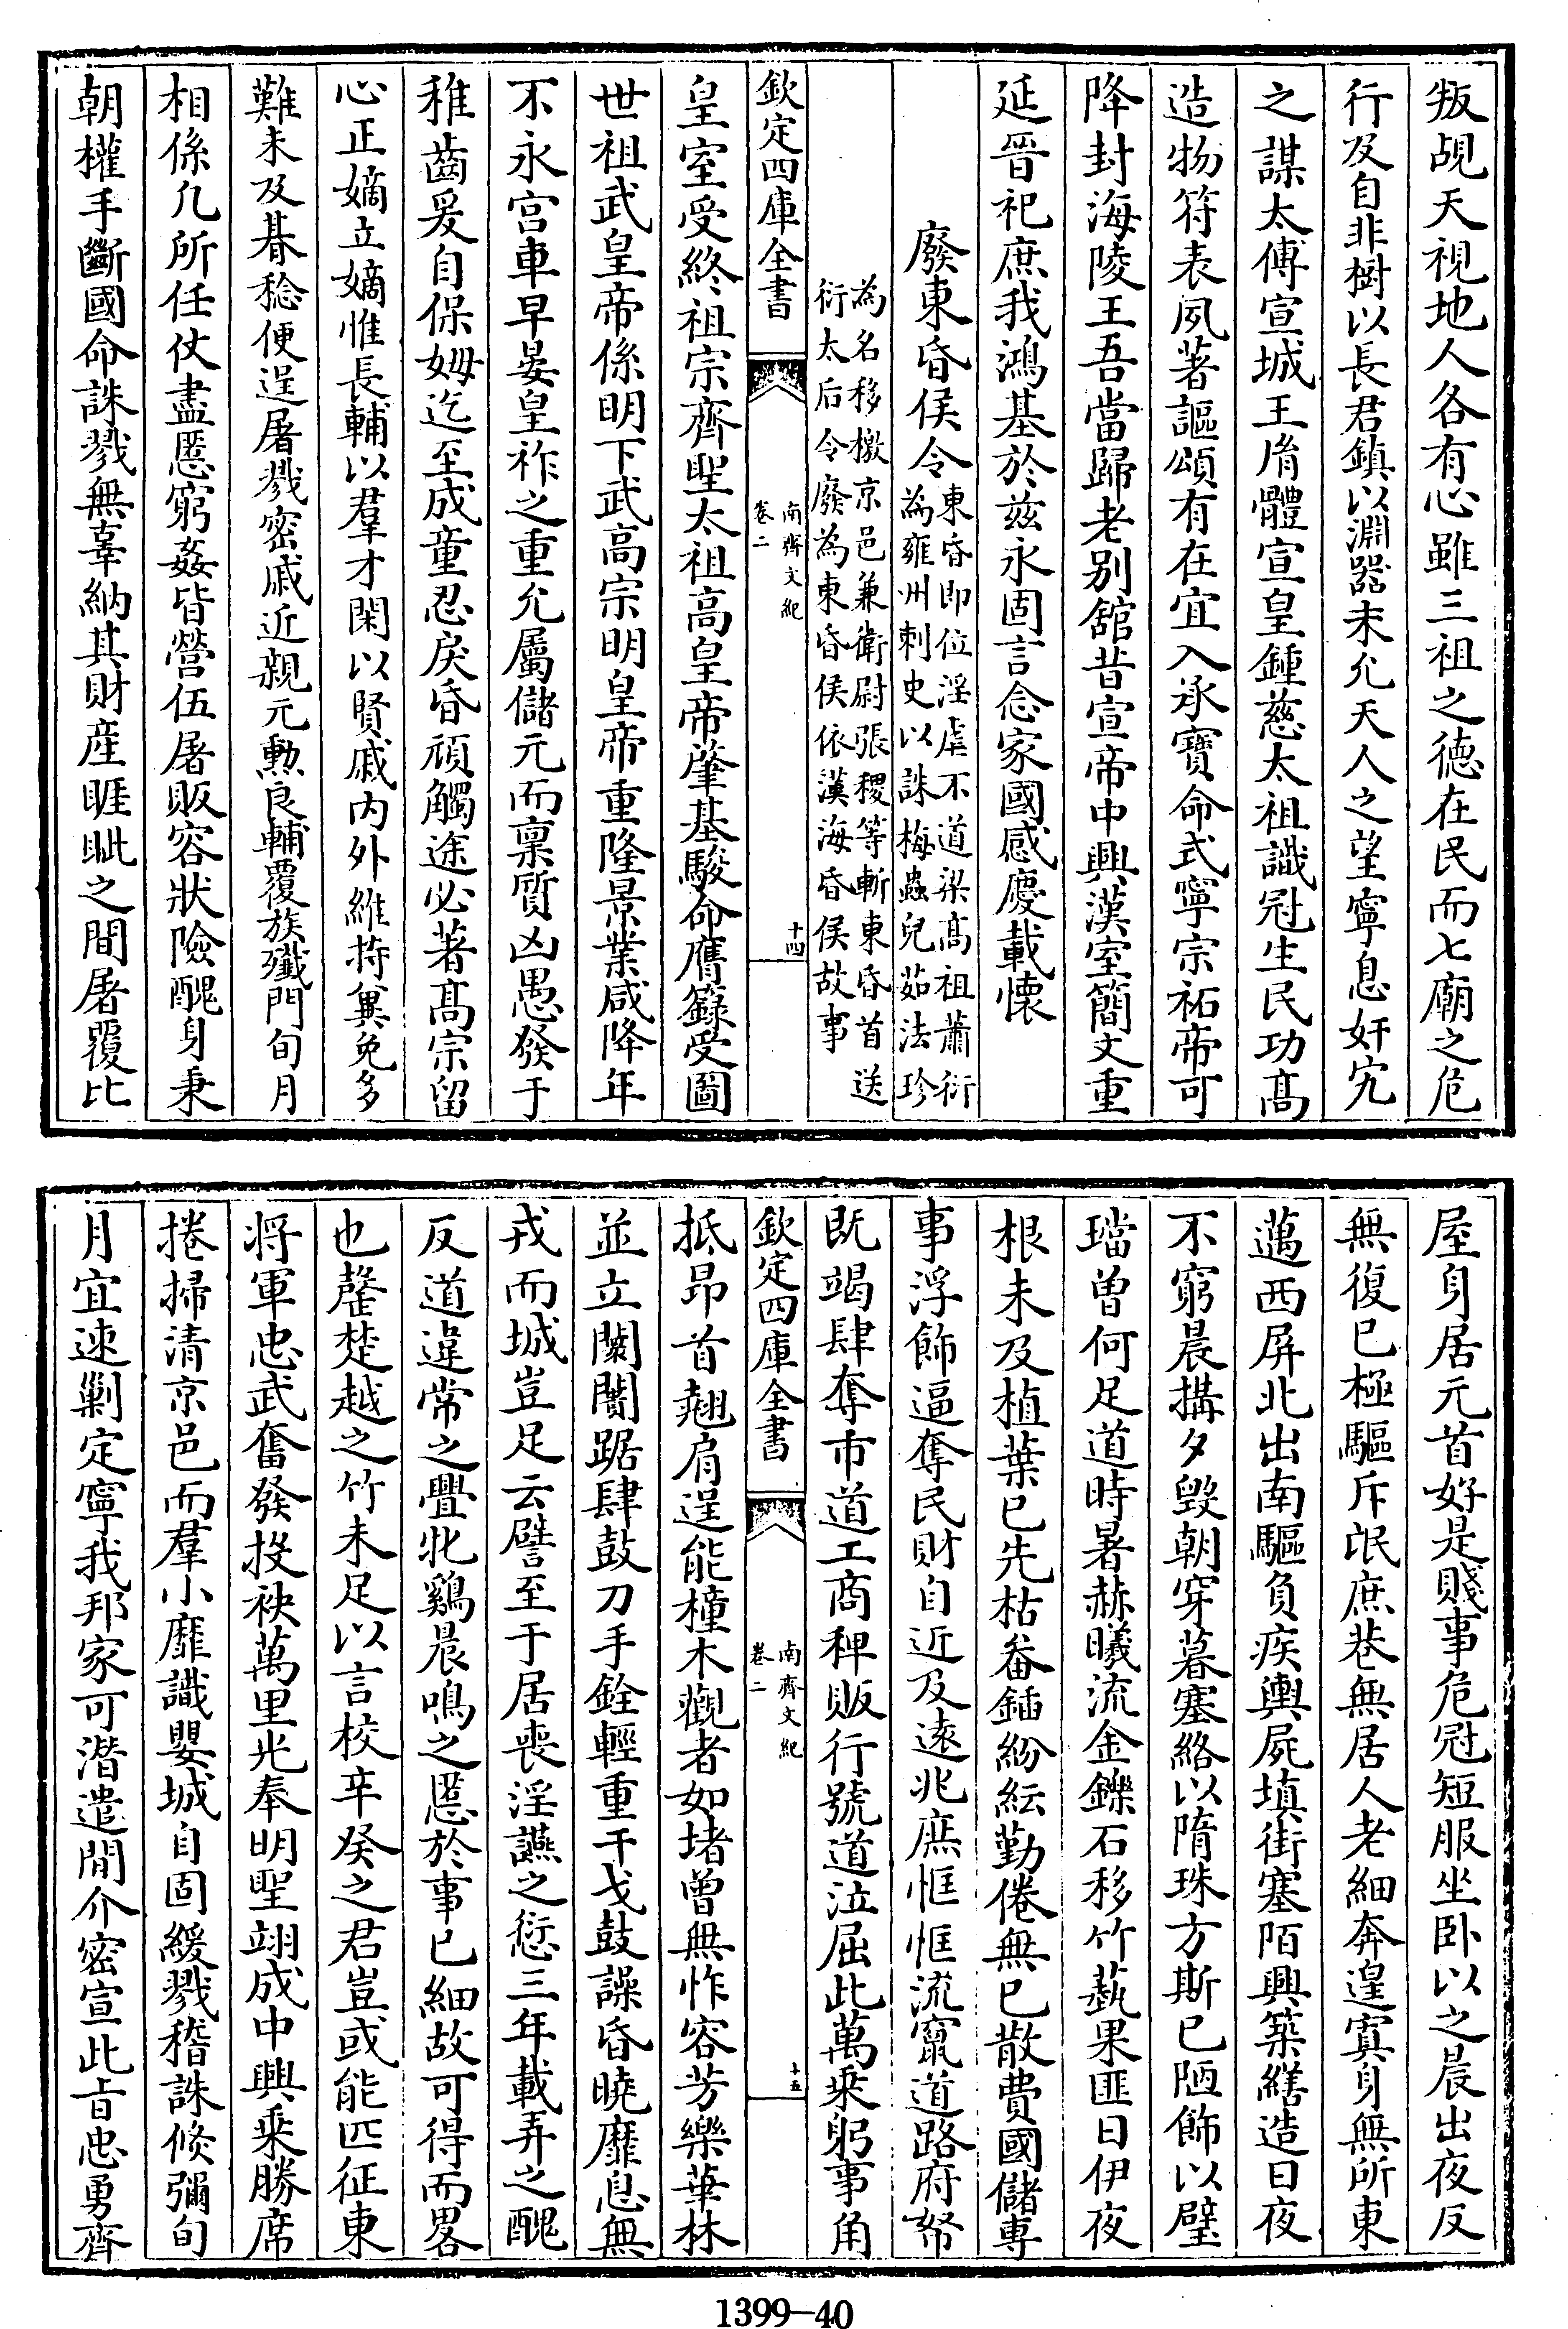 叛覘天視地人各有心雖三祖之德在民而七廟之危
行及自非樹以長君鎮以淵器未允天人之望寧息奸宄
之謀太傅宣城王胤體宣皇鍾慈太祖識冠生民功髙
造物符表夙著謳頌有在宜入承寶命式寧宗祏帝可
降封海陵王吾當歸老别舘昔宣帝中興漢室簡文重
延晉祀庶我鴻基於兹永固言念家國感慶載懷
廢東昏侯令
東昏即位淫虐不道梁髙祖蕭衍
為雍州刺史以誅梅蟲兒茹法珍
為名移檄京邑兼衛尉張稷等斬東昏首送
衍太后令廢為東昏侯依漢海昏侯故事
欽定四庫全書
南齊文紀
卷二
十四
皇室受終祖宗齊聖太祖高皇帝肇基駿命膺籙受圖
世祖武皇帝係明下武高宗明皇帝重隆景業咸降年
不永宫車早晏皇祚之重允屬儲元而禀質凶愚發于
稚齒爰自保姆迄至成童忍戾昏頑觸途必著髙宗留
心正嫡立嫡惟長輔以羣才閑以賢戚内外維持兾免多
難未及朞稔便逞屠戮密戚近親元勲良輔覆族殲門旬月
相係凡所任仗盡慝窮姦皆營伍屠販容狀險醜身秉
朝權手斷國命誅戮無辜納其財産睚眦之間屠覆比
屋身居元首好是賤事危冠短服坐卧以之晨出夜反
無復已極驅斥氓庶巷無居人老細奔遑寘身無所東
邁西屏北出南驅負疾輿屍填街塞陌興築繕造日夜
不窮晨搆夕毁朝穿暮塞絡以隋珠方斯已陋飾以璧
璫曾何足道時暑赫曦流金鑠石移竹蓺果匪日伊夜
根未及植葉已先枯畚鍤紛紜勤倦無已散費國儲専
事浮飾逼奪民財自近及逺兆庶恇恇流竄道路府帑
既竭肆奪市道工商稗販行號道泣屈此萬乘躬事角
欽定四庫全書
南齊文紀
卷二
十五
抵昂首翹肩逞能橦木觀者如堵曾無怍容芳樂華林
並立闤闠踞肆鼓刀手銓輕重干戈鼓譟昏曉靡息無
戎而城豈足云譬至于居喪淫讌之愆三年載弄之醜
反道違常之舋牝鷄晨鳴之慝於事已細故可得而畧
也罄楚越之竹未足以言校辛癸之君豈或能匹征東
將軍忠武奮發投袂萬里光奉明聖翊成中興乘勝席
捲掃清京邑而羣小靡識嬰城自固緩戮稽誅倐彌旬
月宜速剿定寧我邦家可潛遣閒介密宣此旨忠勇齊
1399-40